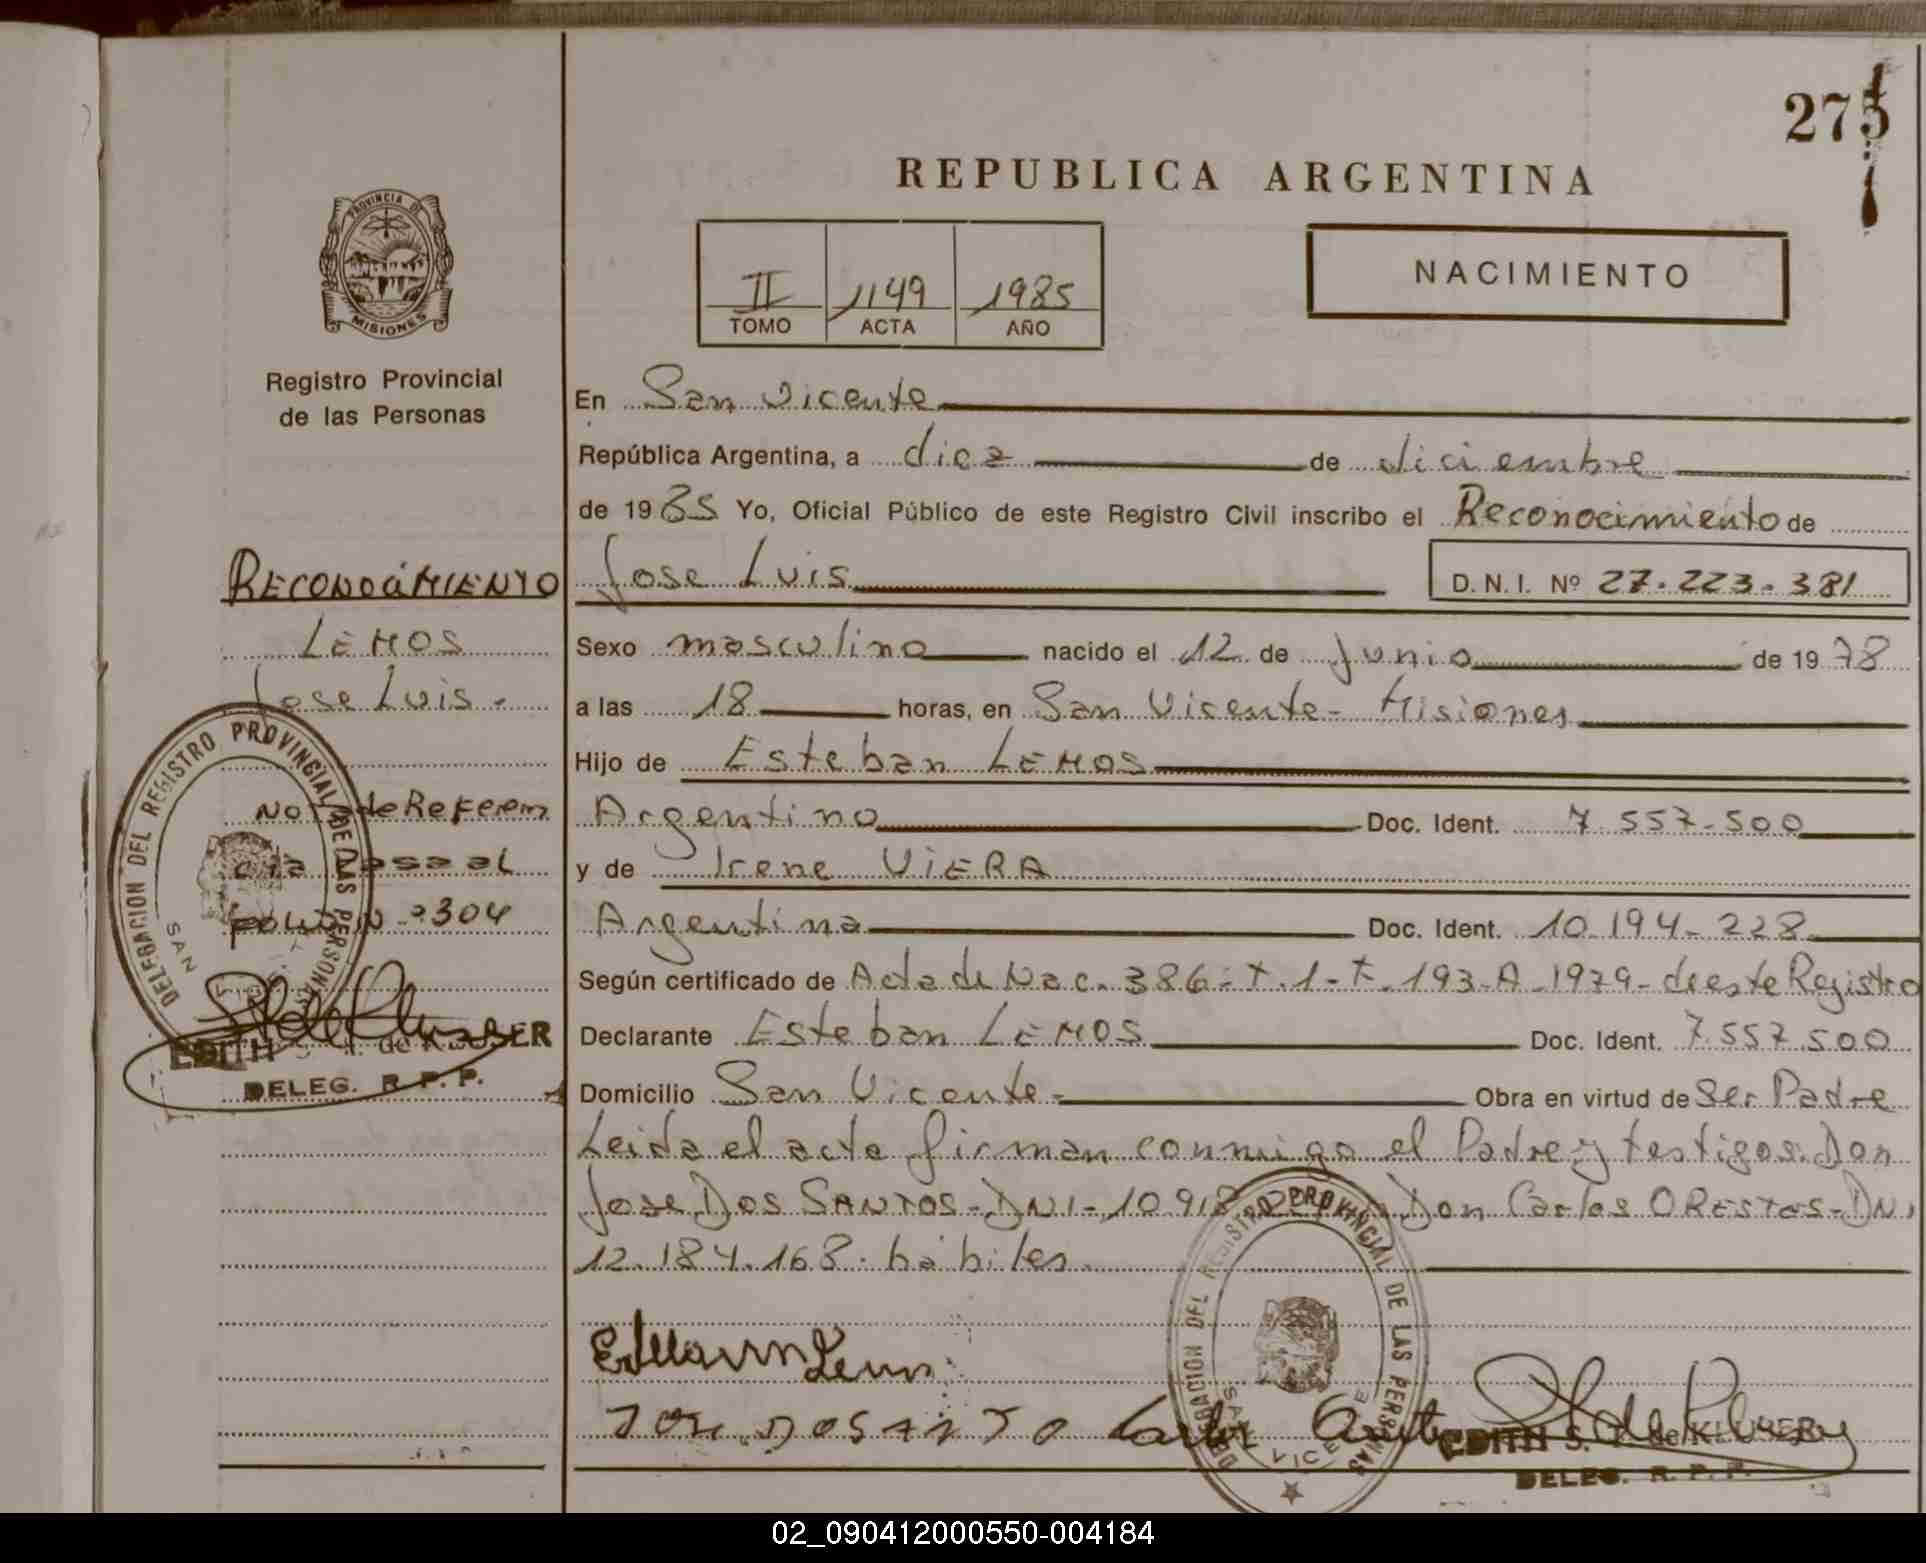 275
REPUBLICA ARGENTINA
PROVINCIA DE
MISIONES
II 1149 1985
TOMO ACTA AÑO
NACIMIENTO
Registro Provincial
de las Personas
En San Vicente
República Argentina, a diez de diciembre
de 1985 Yo, Oficial Público de este Registro Civil inscribo el Reconocimiento de
Jose Luis D.N.I. Nº 27.223.381
Sexo masculino nacido el 12 de Junio de 1978
a las 18 horas, en San Vicente - Misiones
Hijo de Esteban LEMOS
Argentino Doc. Ident. 7.557.500
y de Irene VIERA
Argentina Doc. Ident. 10.194.228
Según certificado de Acta de Nac. 386 - T. 1 - F. 193 - A - 1979 - de este Registro
Declarante Esteban LEMOS Doc. Ident. 7.557.500
Domicilio San Vicente - Obra en virtud de Ser Padre
Leida el acta firman conmigo el Padre y testigos: Don
Jose DOS SANTOS - DNI - 10.918 Don Carlos ORESTES - DNI
12.184.168. hábiles.
RECONOCIMIENTO
LEMOS
Jose Luis -
Nota de Referen
cia pasa al
FOLIO Nº 304
DELEGACION DEL REGISTRO PROVINCIAL DE LAS PERSONAS
SAN
EDITH de KLUSER
DELEG. R.P.P.
DELEGACION DEL REGISTRO PROVINCIAL DE LAS PERSONAS
SAN VICENTE
EDITH S. de KLUSER
DELEG. R. P. P.
02_090412000550-004184